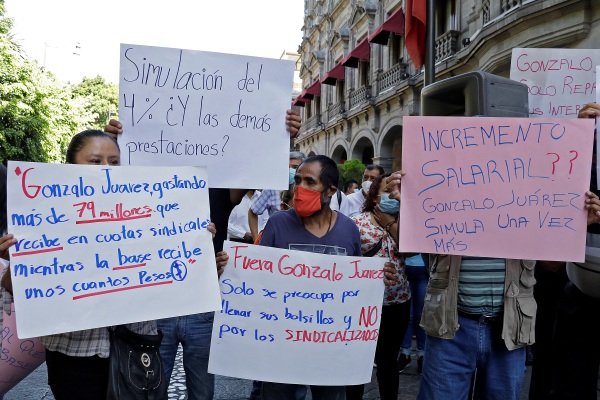 Simulación del
4% ¿Y las demás
prestaciones?
GONZALO
SOLO REPA
SUS INTERE
"Gonzalo Juárez, gastando
más de 79 millones que
recibe en cuotas sindicales
mientras la base recibe
unos cuantos Pesos
INCREMENTO
SALARIAL ??
GONZALO JUÁREZ
SIMULA UNA VEZ
MÁS
Fuera Gonzalo Juarez
Solo se preocupa por
llenar sus bolsillos y NO
por los SINDICALIZADOS